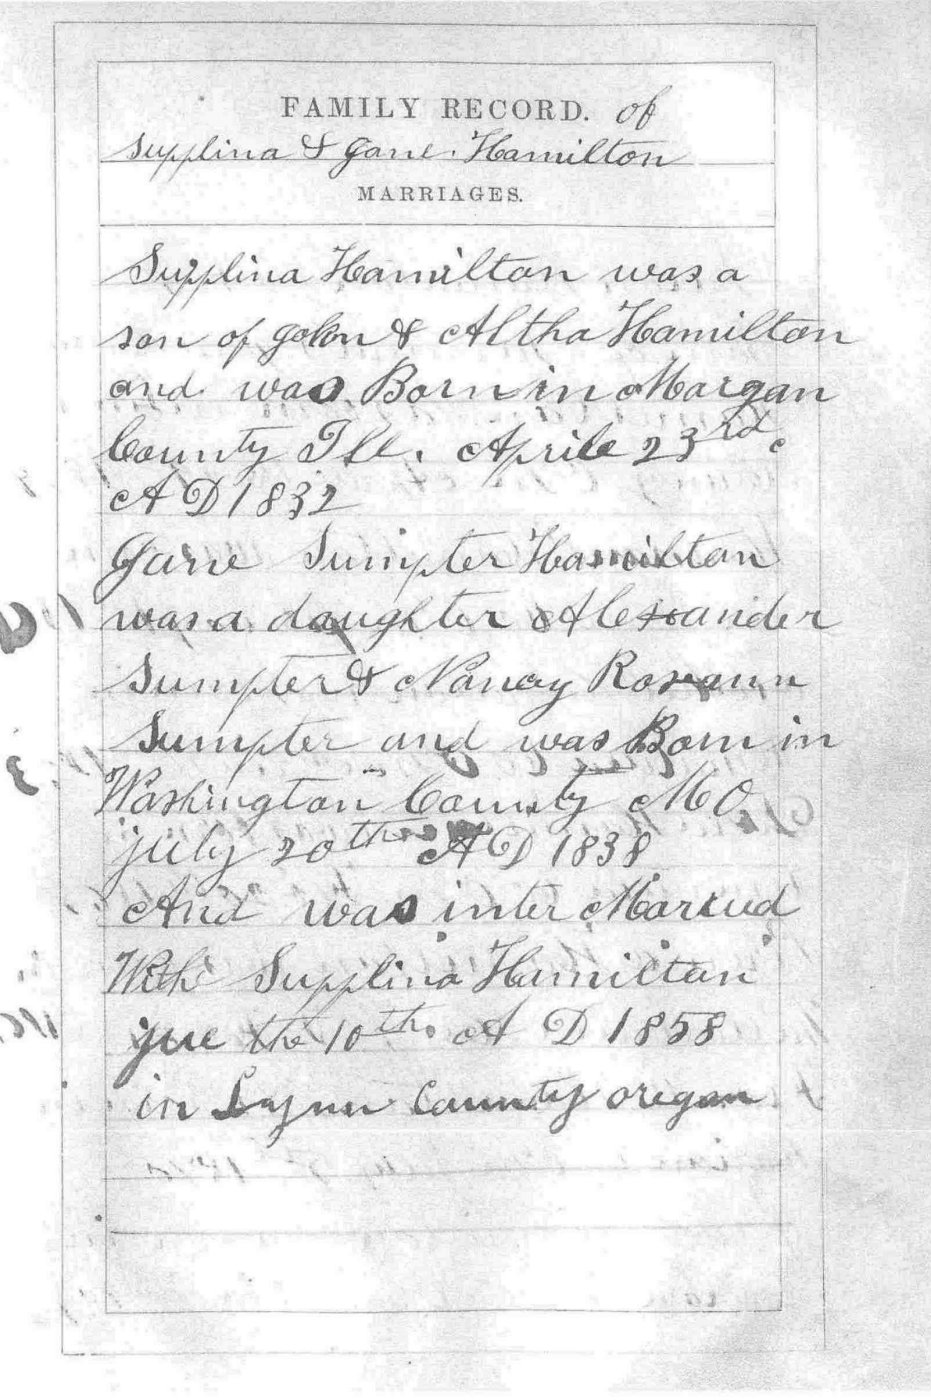 FAMILY RECORD. of
Supplina & Jane. Hamilton
MARRIAGES.
Supplina Hamilton was a
son of John & Altha Hamilton
and was Born in Morgan
County Ill. Aprile 23rd
A D 1832
Jane Sumpter Hamilton
was a daughter Alexander
Sumpter & Nancy Roseann
Sumpter and was Born in
Washington County MO
july 20th A D 1838
And was inter Maried
With Supplina Hamilton
jue the 10th. A D 1858
in Lynn County oregon